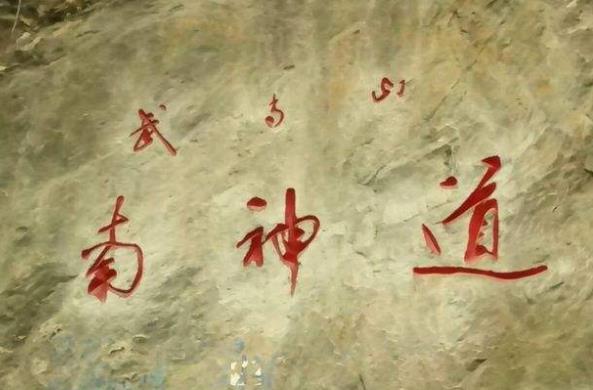 武当山
南神道